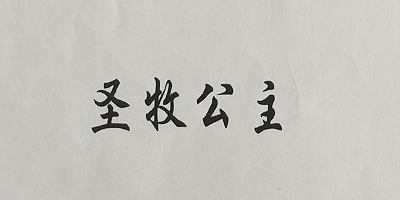 圣牧公主